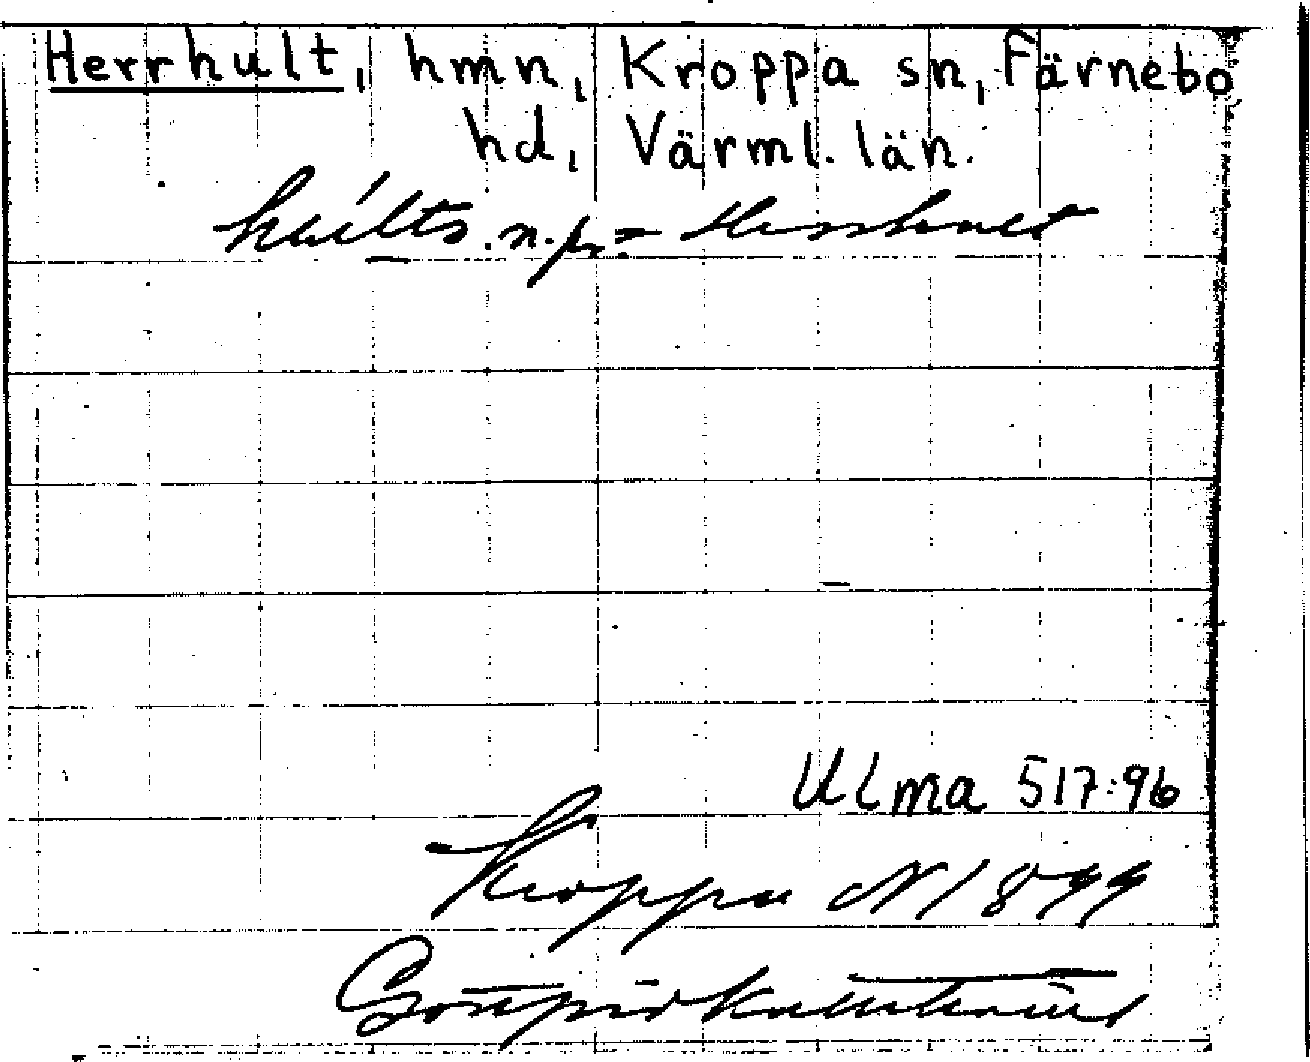 Herrhult, hmn, Kroppa sn, Färnebo
hd, Värml. län.
n. pr. = Herrhult
Ulma 517:96
Kroppa N 1899